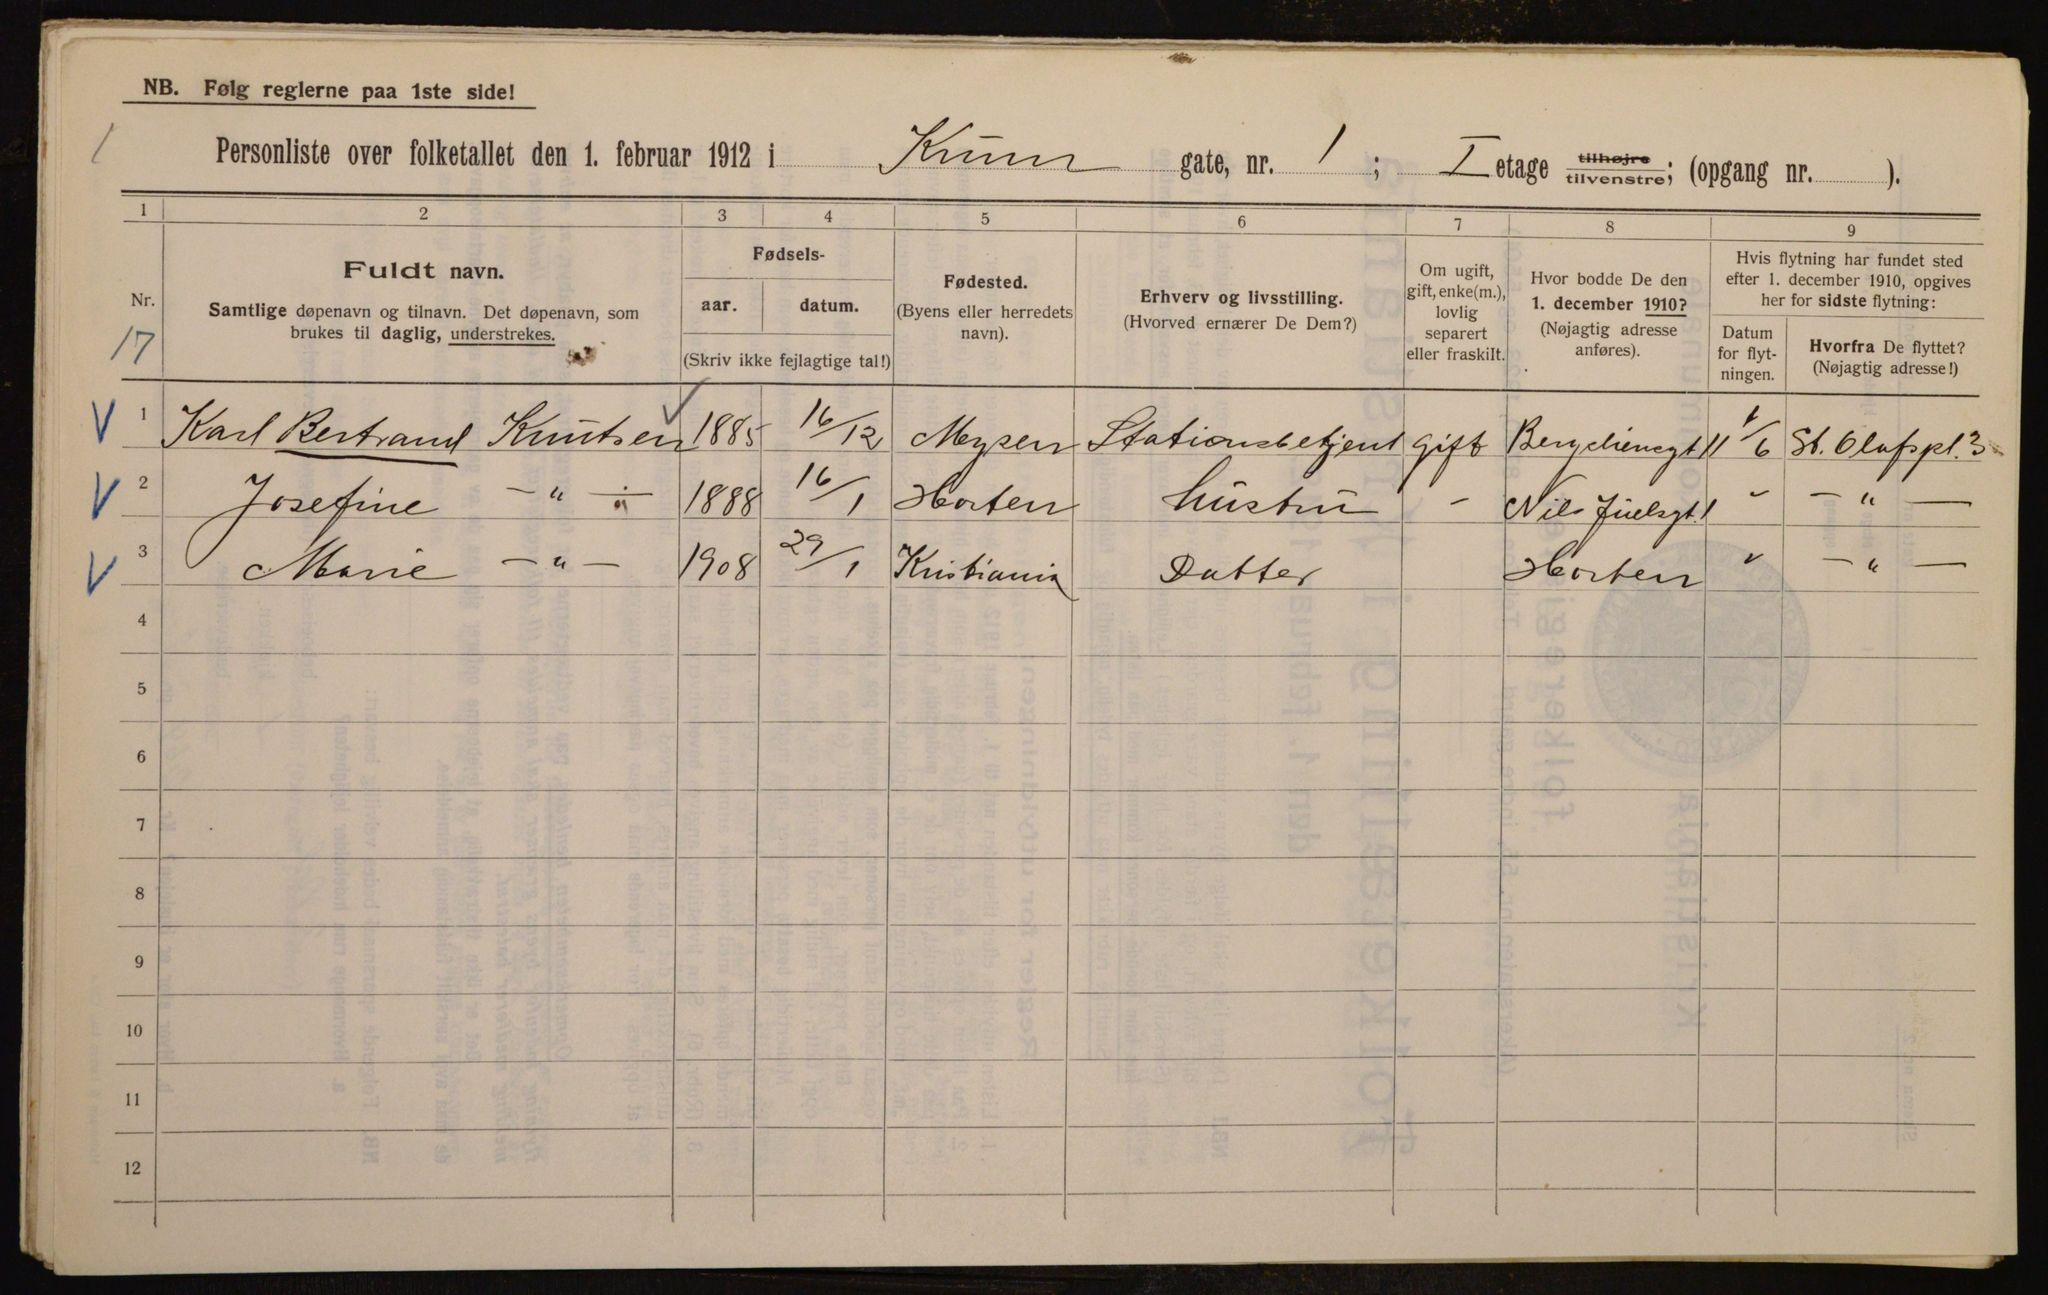 NB. Følg reglerne paa 1ste side!
1
Personliste over folketallet den 1. februar 1912 i Krum gate, nr. 1 ; I etage tilhøjre tilvenstre; (opgang nr. ).
1 2 3 4 5 6 7 8 9
Nr.
17
Fuldt navn.
Samtlige døpenavn og tilnavn. Det døpenavn, som
brukes til daglig, understrekes.
Fødsels-
aar. datum.
(Skriv ikke fejlagtige tal!)
Fødested.
(Byens eller herredets
navn).
Erhverv og livsstilling.
(Hvorved ernærer De Dem?)
Om ugift,
gift, enke(m.),
lovlig
separert
eller fraskilt.
Hvor bodde De den
1. december 1910?
(Nøjagtig adresse
anføres).
Hvis flytning har fundet sted
efter 1. december 1910, opgives
her for sidste flytning:
Datum
for flyt-
ningen.
Hvorfra De flyttet?
(Nøjagtig adresse!)
V 1 Karl Bertrand Knutsen ✓ 1885 16/12 Mysen Stationsbetjent gift 11 1/6 St. Olafspl. 3
V 2 Josefine — " — 1888 16/1 Horten Hustru " Nils Juelsgt. 1 " — " —
V 3 Marie — " — 1908 29/1 Kristiania Datter Horten " — " —
4
5
6
7
8
9
10
11
12